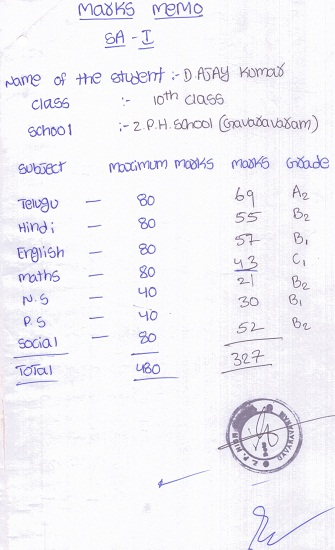 Marks Memo
SA - I
Name of the student :- D. AJAY Kumar
class :- 10th class
school :- Z P.H. School (Gavaravaram)
subject maximum marks marks Grade
Telugu — 80 69 A2
Hindi — 80 55 B2
English — 80 57 B1
maths — 80 43 C1
N.S — 40 21 B2
P.S — 40 30 B1
Social — 80 52 B2
Total 480 327